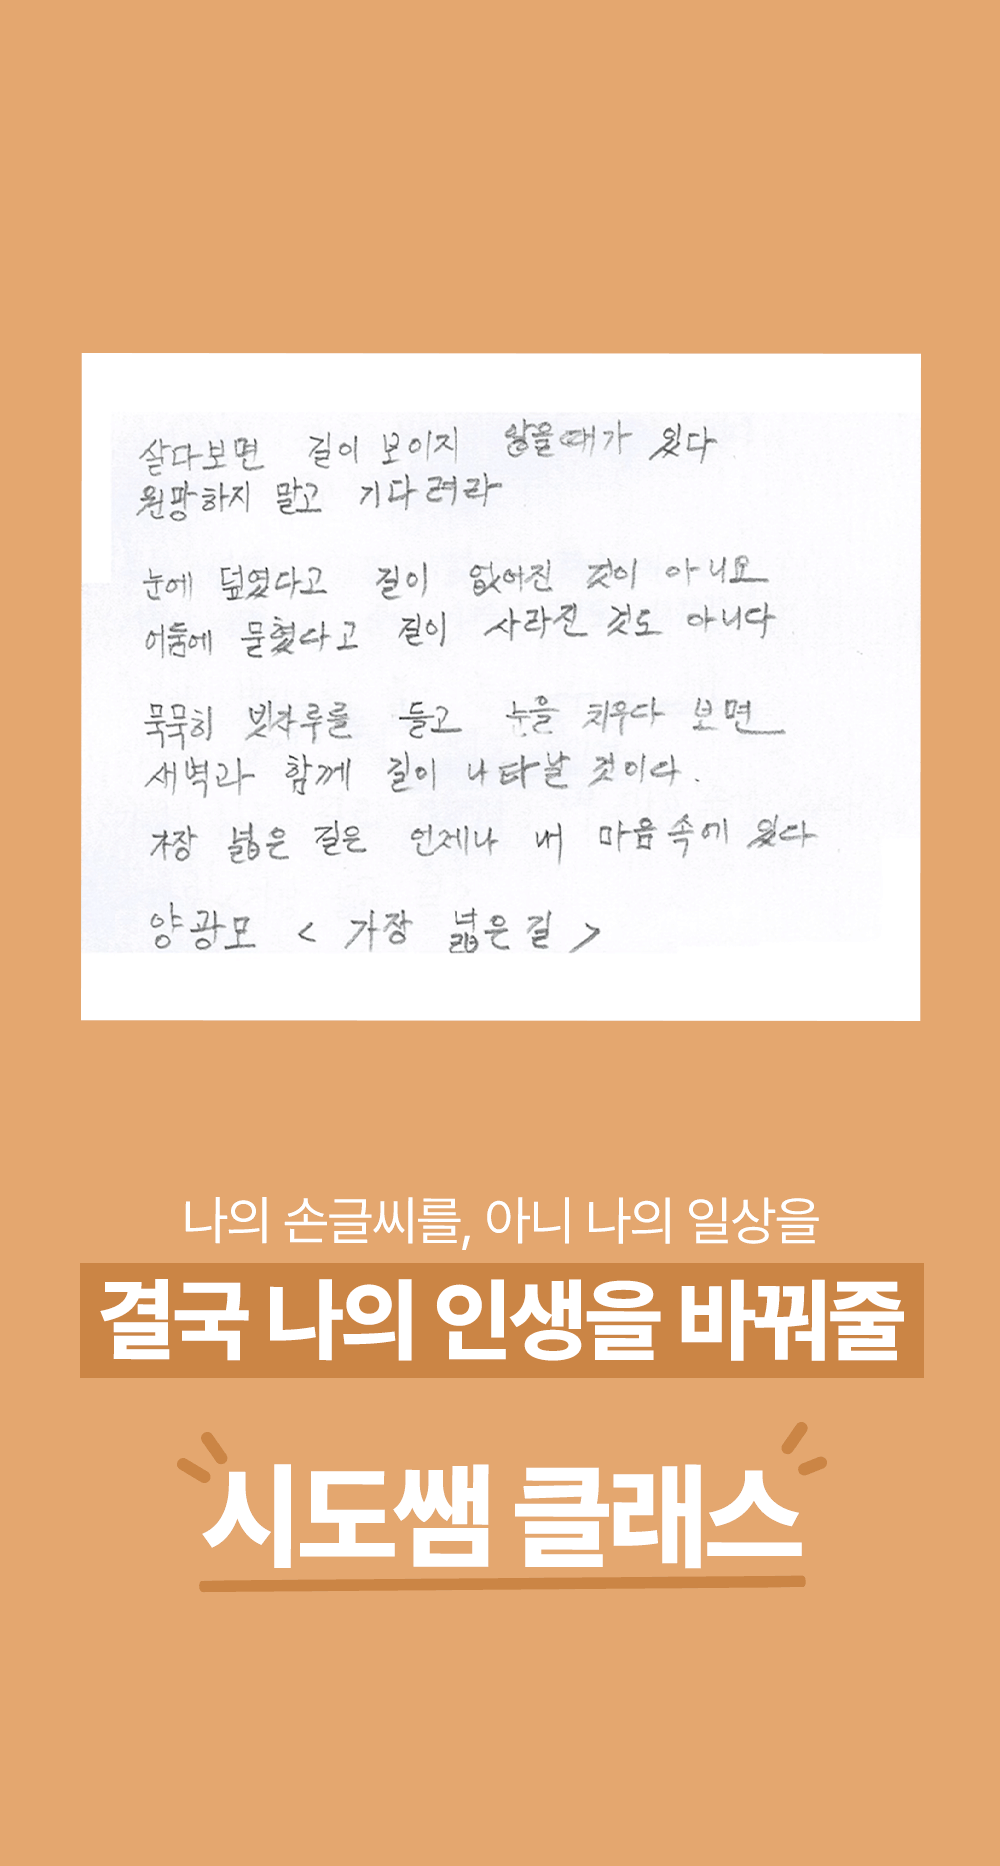 살다보면 길이 보이지 않을때가 있다
원망하지 말고 기다려라
눈에 덮였다고 길이 없어진 것이 아니요
어둠에 묻혔다고 길이 사라진 것도 아니다
묵묵히 빗자루를 들고 눈을 치우다 보면
새벽과 함께 길이 나타날 것이다.
가장 넓은 길은 언제나 내 마음속에 있다
양광모 < 가장 넓은길 >
나의 손글씨를, 아니 나의 일상을
결국 나의 인생을 바꿔줄
시도쌤 클래스